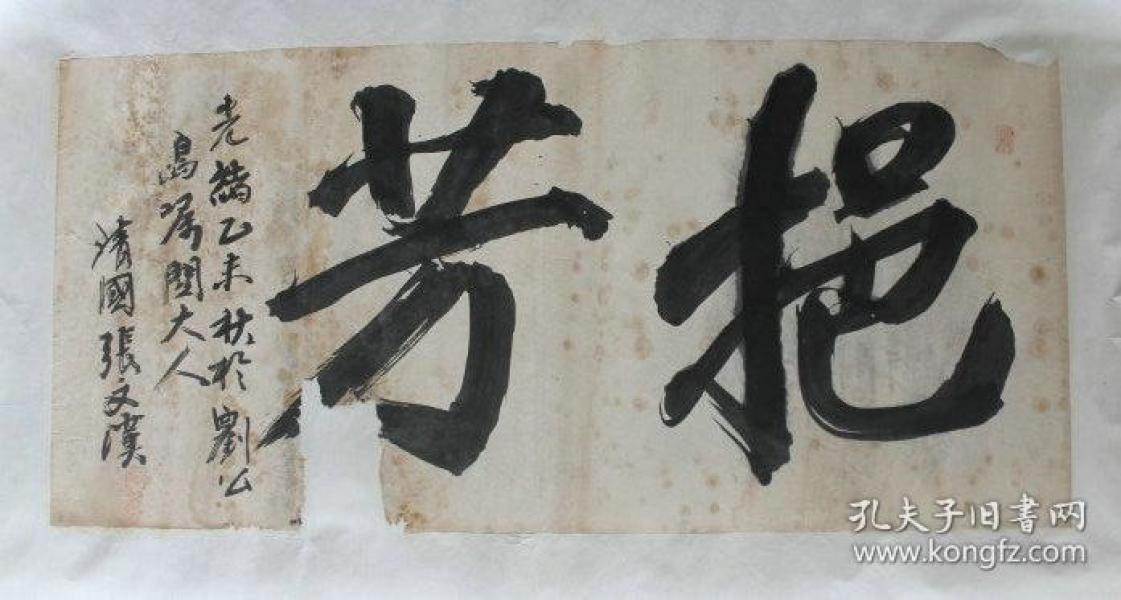 挹芳
光緒乙未秋於劉公
島属閏大人
清國張文漢
孔夫子旧書网
www.kongfz.com